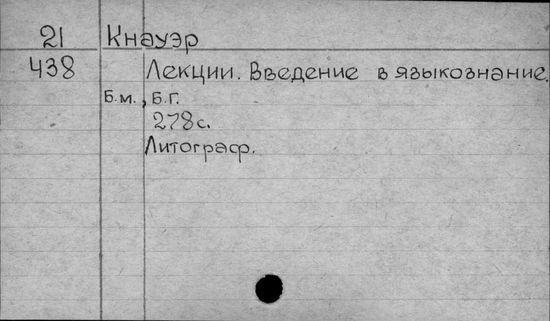 21 Кнауэр
438 Лекции. Введение в языкознание.
Б.м., Б.г.
278 с.
Литограф.